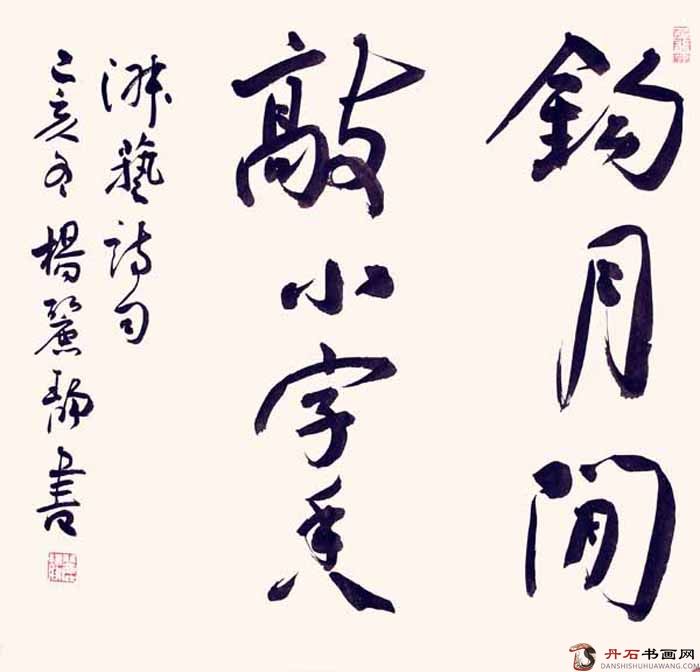 鈎月閒
敲小字
藝詩句
己亥冬楊麗静書
丹石书画网
DANSHISHUHUAWANG.COM